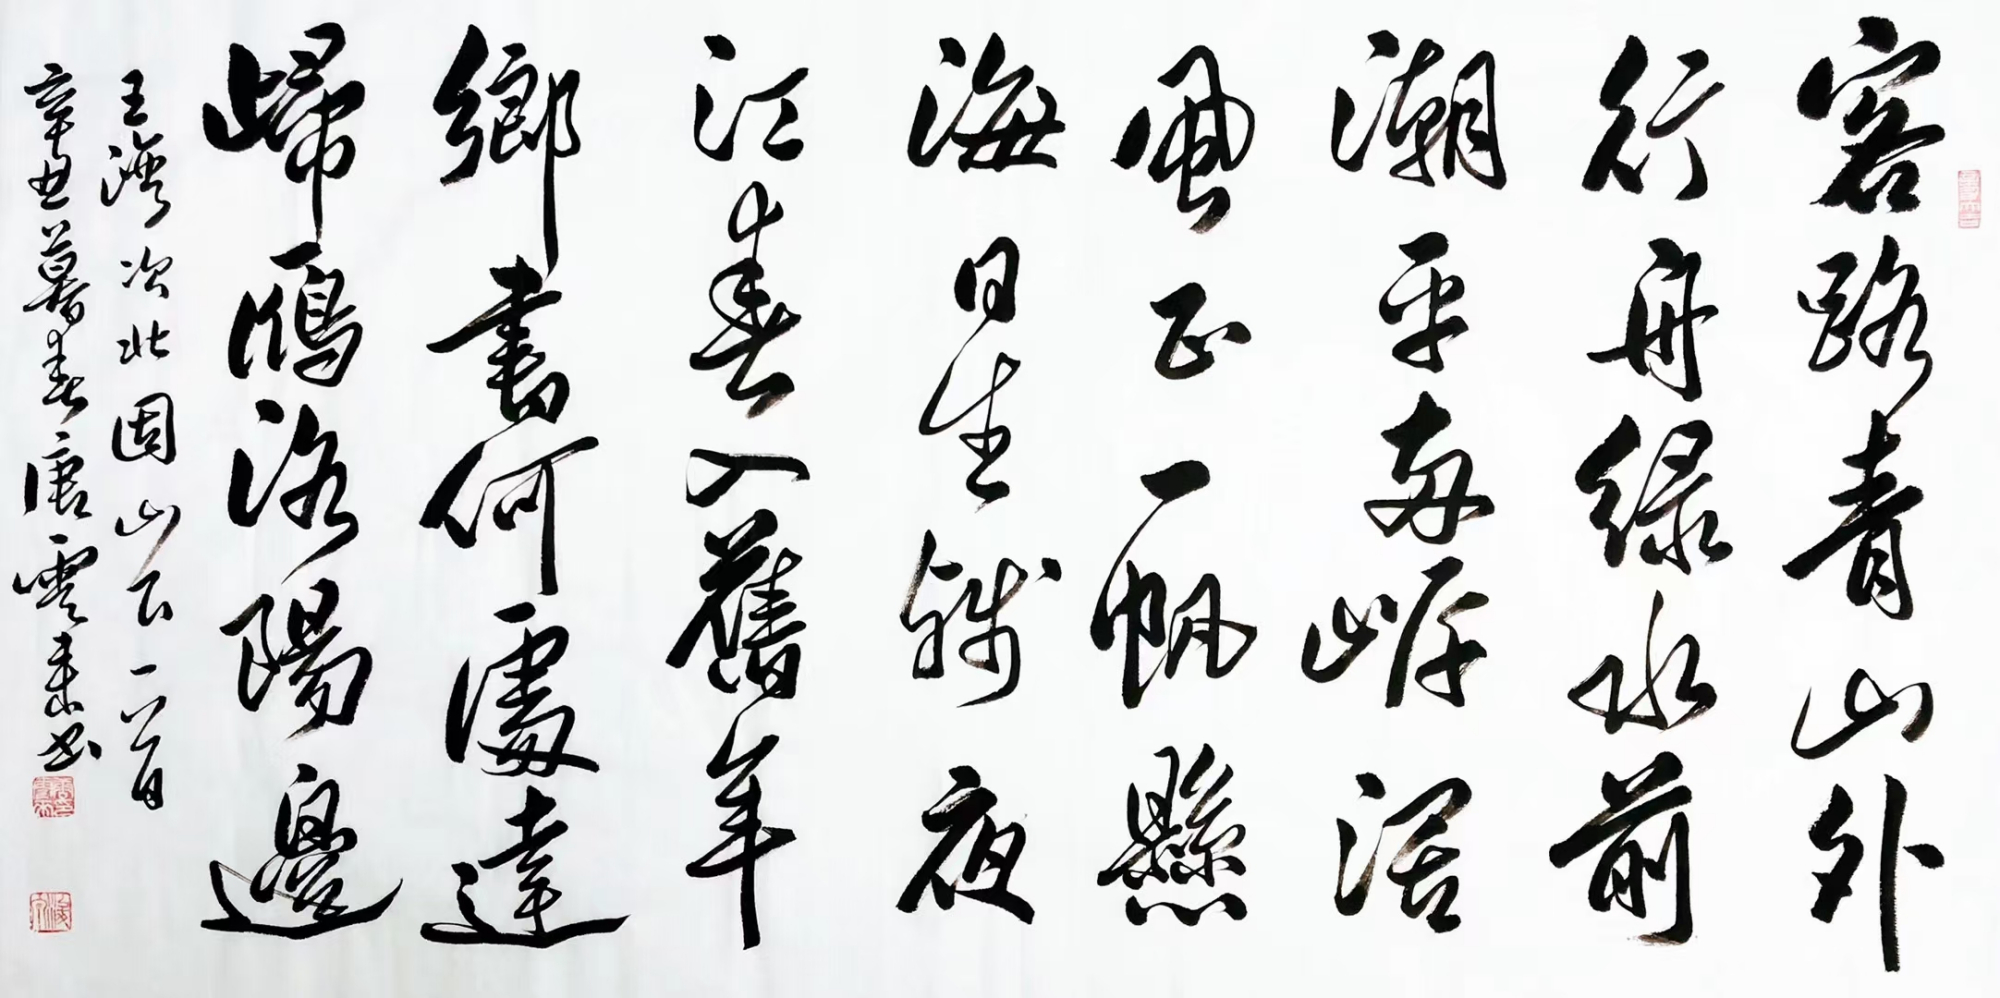 客路青山外
行舟绿水前
潮平两岸阔
風正一帆懸
海日生残夜
江春入舊年
鄉書何處達
歸雁洛陽邊
王湾次北固山下一首
辛丑暮春唐雲来书